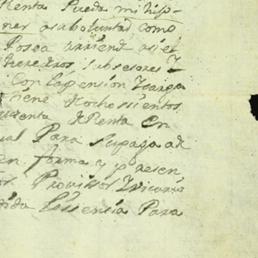 Renta Pueda mi hijo
ner asaboluntad como
Posea arriend así el
herederos subsesores Y
Con la pensión Ycarga
tiene Ochossientos
Renta En
ual Para Supaga ad
en forma y presen
or Provissor Yvicario
dida Lissensia Para